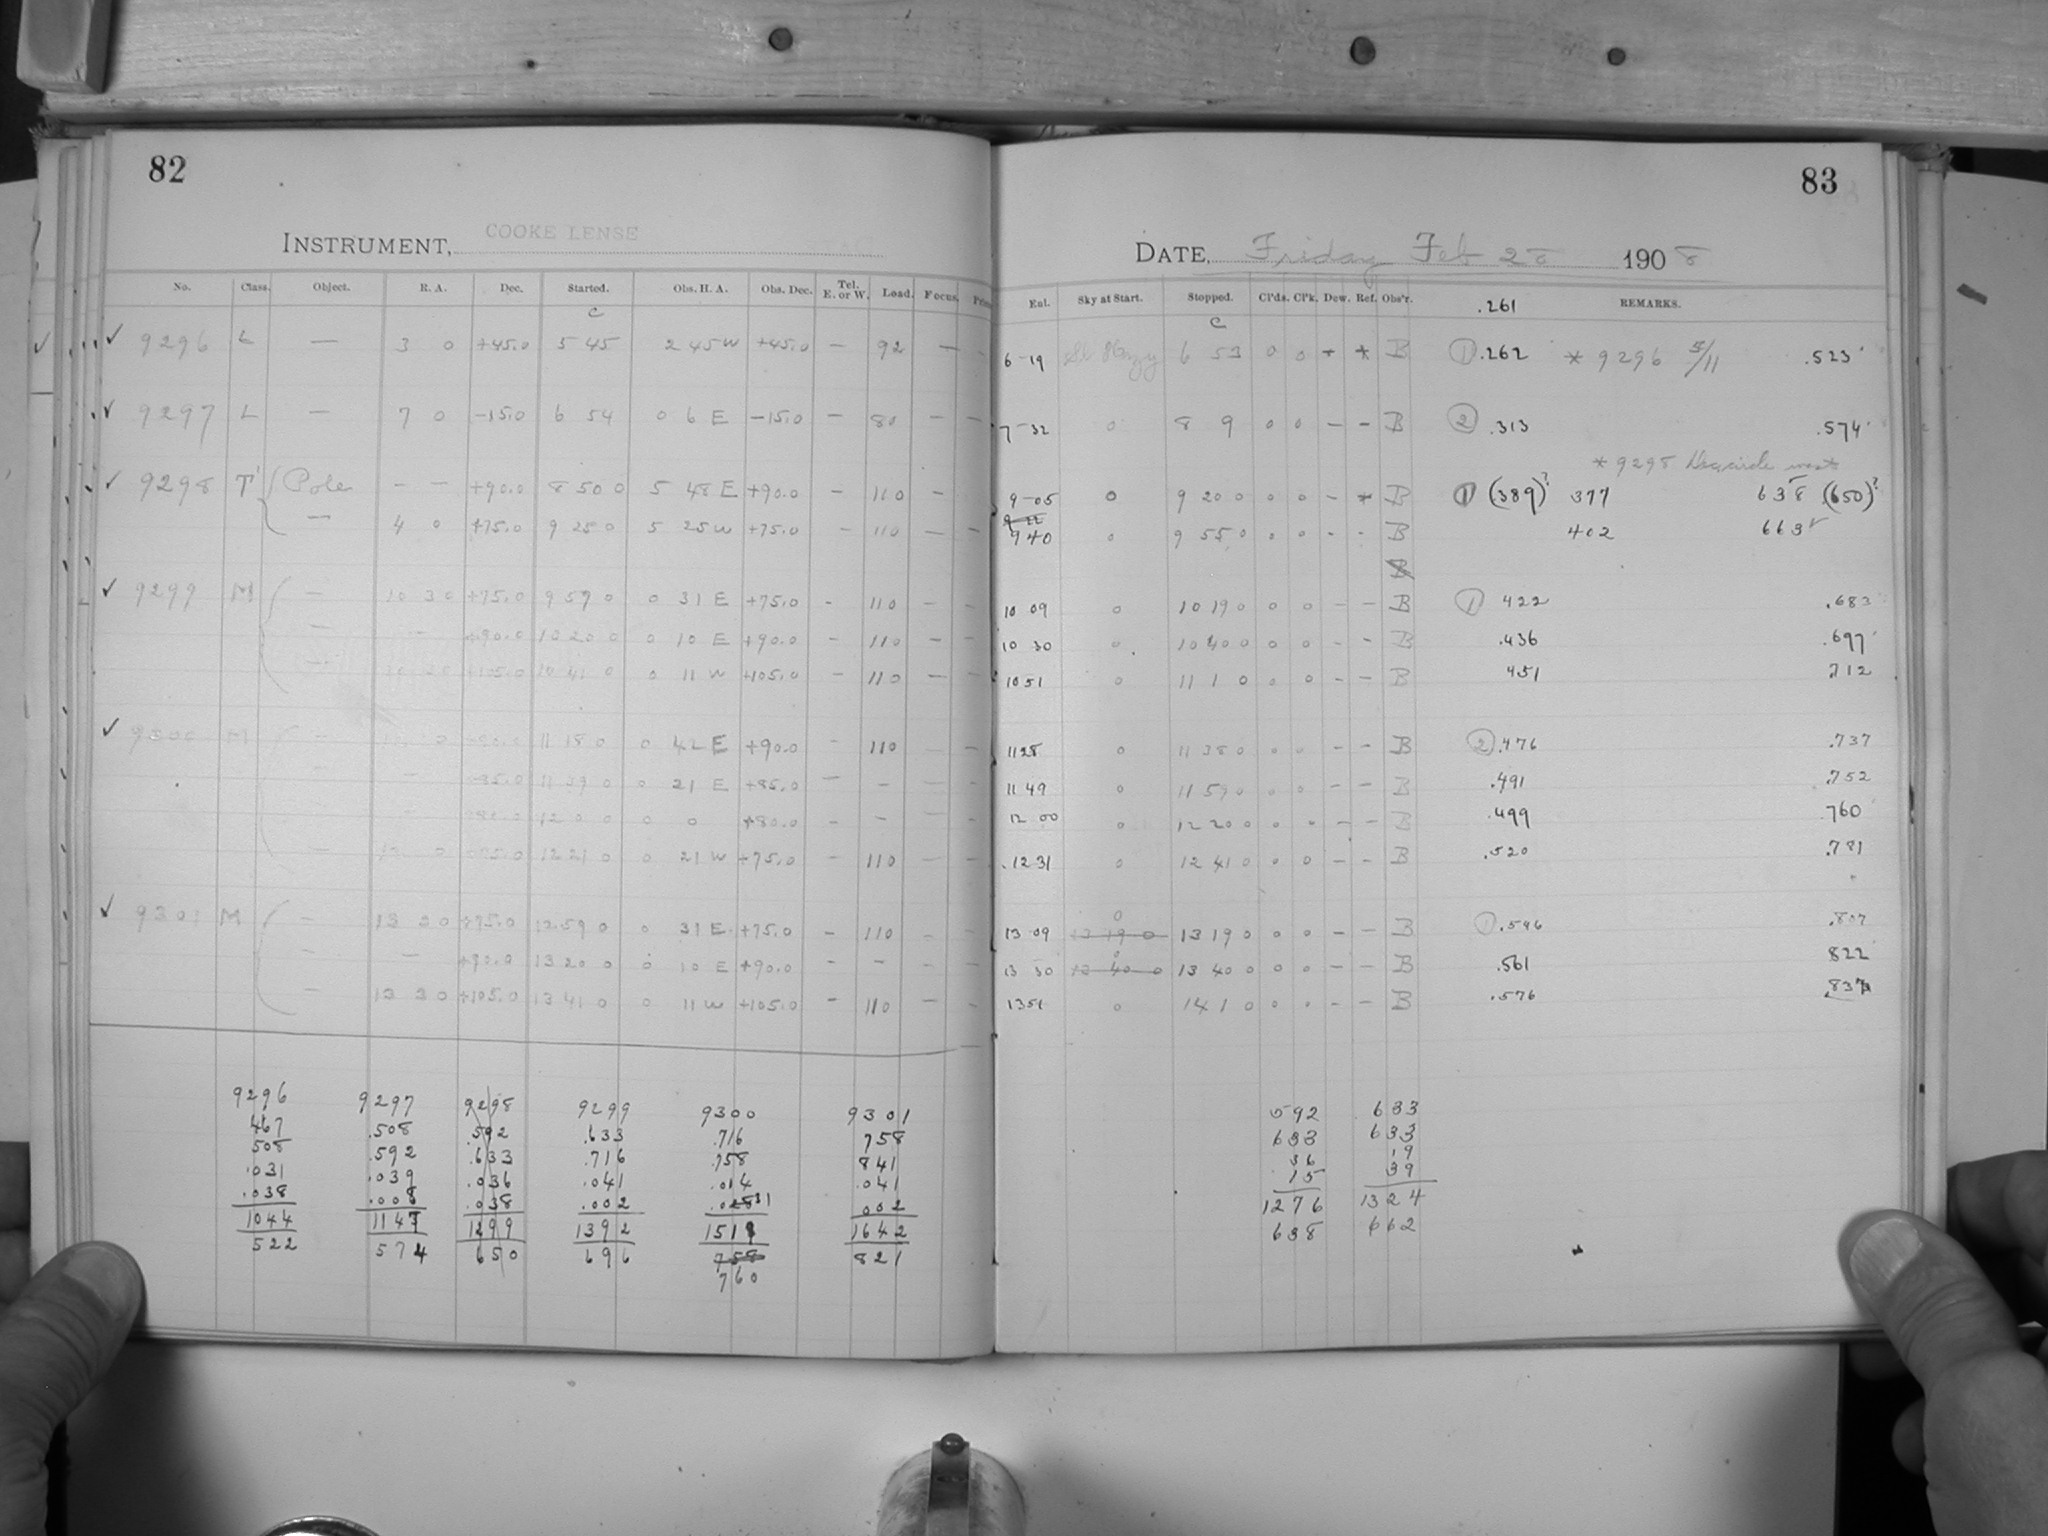 82
INSTRUMENT, COOKE LENSE
No. Class. Object. R. A. Dec. Started. Obs. H. A. Obs. Dec. Tel. E. or W. Load. Focus.
C
9296 L — 3 0 +45.0 5 45 2 45 W +45.0 — 92 —
9297 L — 7 0 -15.0 6 54 0 6 E -15.0 — 80 —
9298 T' Pole — — +90.0 8 50 0 5 48 E +90.0 — 110 —
— 4 0 +75.0 9 25 0 5 25 W +75.0 — 110 —
9299 M — 10 30 +75.0 9 59 0 0 31 E +75.0 - 110 —
— — +90.0 10 20 0 0 10 E +90.0 — 110 —
— 10 30 +105.0 10 41 0 0 11 W +105.0 — 110 —
9300 M — +90.0 11 18 0 0 42 E +90.0 — 110 —
— 11 39 0 0 21 E +85.0 — — —
— 12 0 0 0 0 +80.0 — — —
— 12 0 +75.0 12 21 0 0 21 W +75.0 — 110 —
9301 M — 13 30 +75.0 12 59 0 0 31 E +75.0 — 110 —
— — +90.0 13 20 0 0 10 E +90.0 — — —
— 13 30 +105.0 13 41 0 0 11 W +105.0 — 110 —
9296 9297 9298 9299 9300 9301
467 .508 .592 .633 .716 758
508 .592 .633 .716 .758 841
.031 .039 .036 .041 .014 .041
.038 .008 .038 .002 .031 002
1044 1147 1299 1392 1519 1642
522 574 650 696 758 821
760
83
DATE, Friday Feb 28 1908
Ent. Sky at Start. Stopped. Cl'ds. Cl'k. Dew. Ref. Obs'r. .261 REMARKS.
C
6-19 Sl Hazy 6 53 0 0 * * B 1 .262 * 9296 5/11 .523
7-32 0 8 9 0 0 — — B 2 .313 .574
* 9298 Dec circle west
9-05 0 9 20 0 0 0 — * B 1 (389)? 377 638 (650)?
9 22
9 40 0 9 55 0 0 0 - - B 402 663
B
10 09 0 10 19 0 0 0 — — B 1 422 .683
10 30 0 10 40 0 0 0 — — B .436 .697
10 51 0 11 1 0 0 0 — — B 451 .712
11 28 0 11 38 0 0 0 — — B 2 .476 .737
11 49 0 11 59 0 0 0 — — B .491 .752
12 00 0 12 20 0 0 0 — — B .499 760
12 31 0 12 41 0 0 0 — — B .520 .781
0
13 09 13 19 0 13 19 0 0 0 — — B 1 .546 .807
0
13 30 13 40 0 13 40 0 0 0 — — B .561 822
13 51 0 14 1 0 0 0 — — B .576 837
592 633
633 633
36 19
15 39
1276 1324
638 662